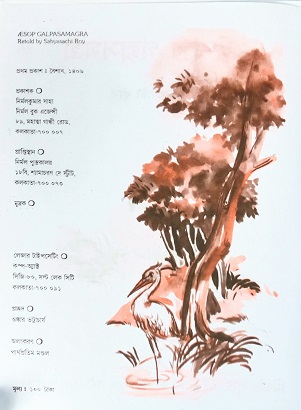 ÆSOP GALPASAMAGRA
Retold by Sabyasachi Roy
প্রথম প্রকাশ : বৈশাখ, ১৪০৬
প্রকাশক
নির্মলকুমার সাহা
নির্মল বুক এজেন্সী
৮৯, মহাত্মা গান্ধী রোড,
কলকাতা-৭০০ ০০৭
প্রাপ্তিস্থান
নির্মল পুস্তকালয়
১৮বি, শ্যামাচরণ দে স্ট্রীট,
কলকাতা-৭০০ ০৭৩
মুদ্রক
লেজার টাইপসেটিং
কম্প-অ্যাক্ট
সিজি-৮০, সল্ট লেক সিটি
কলকাতা-৭০০ ০৯১
প্রচ্ছদ
ওঙ্কার ভট্টাচার্য
অলংকরণ
পার্থপ্রতিম মণ্ডল
মূল্য : ১০০ টাকা